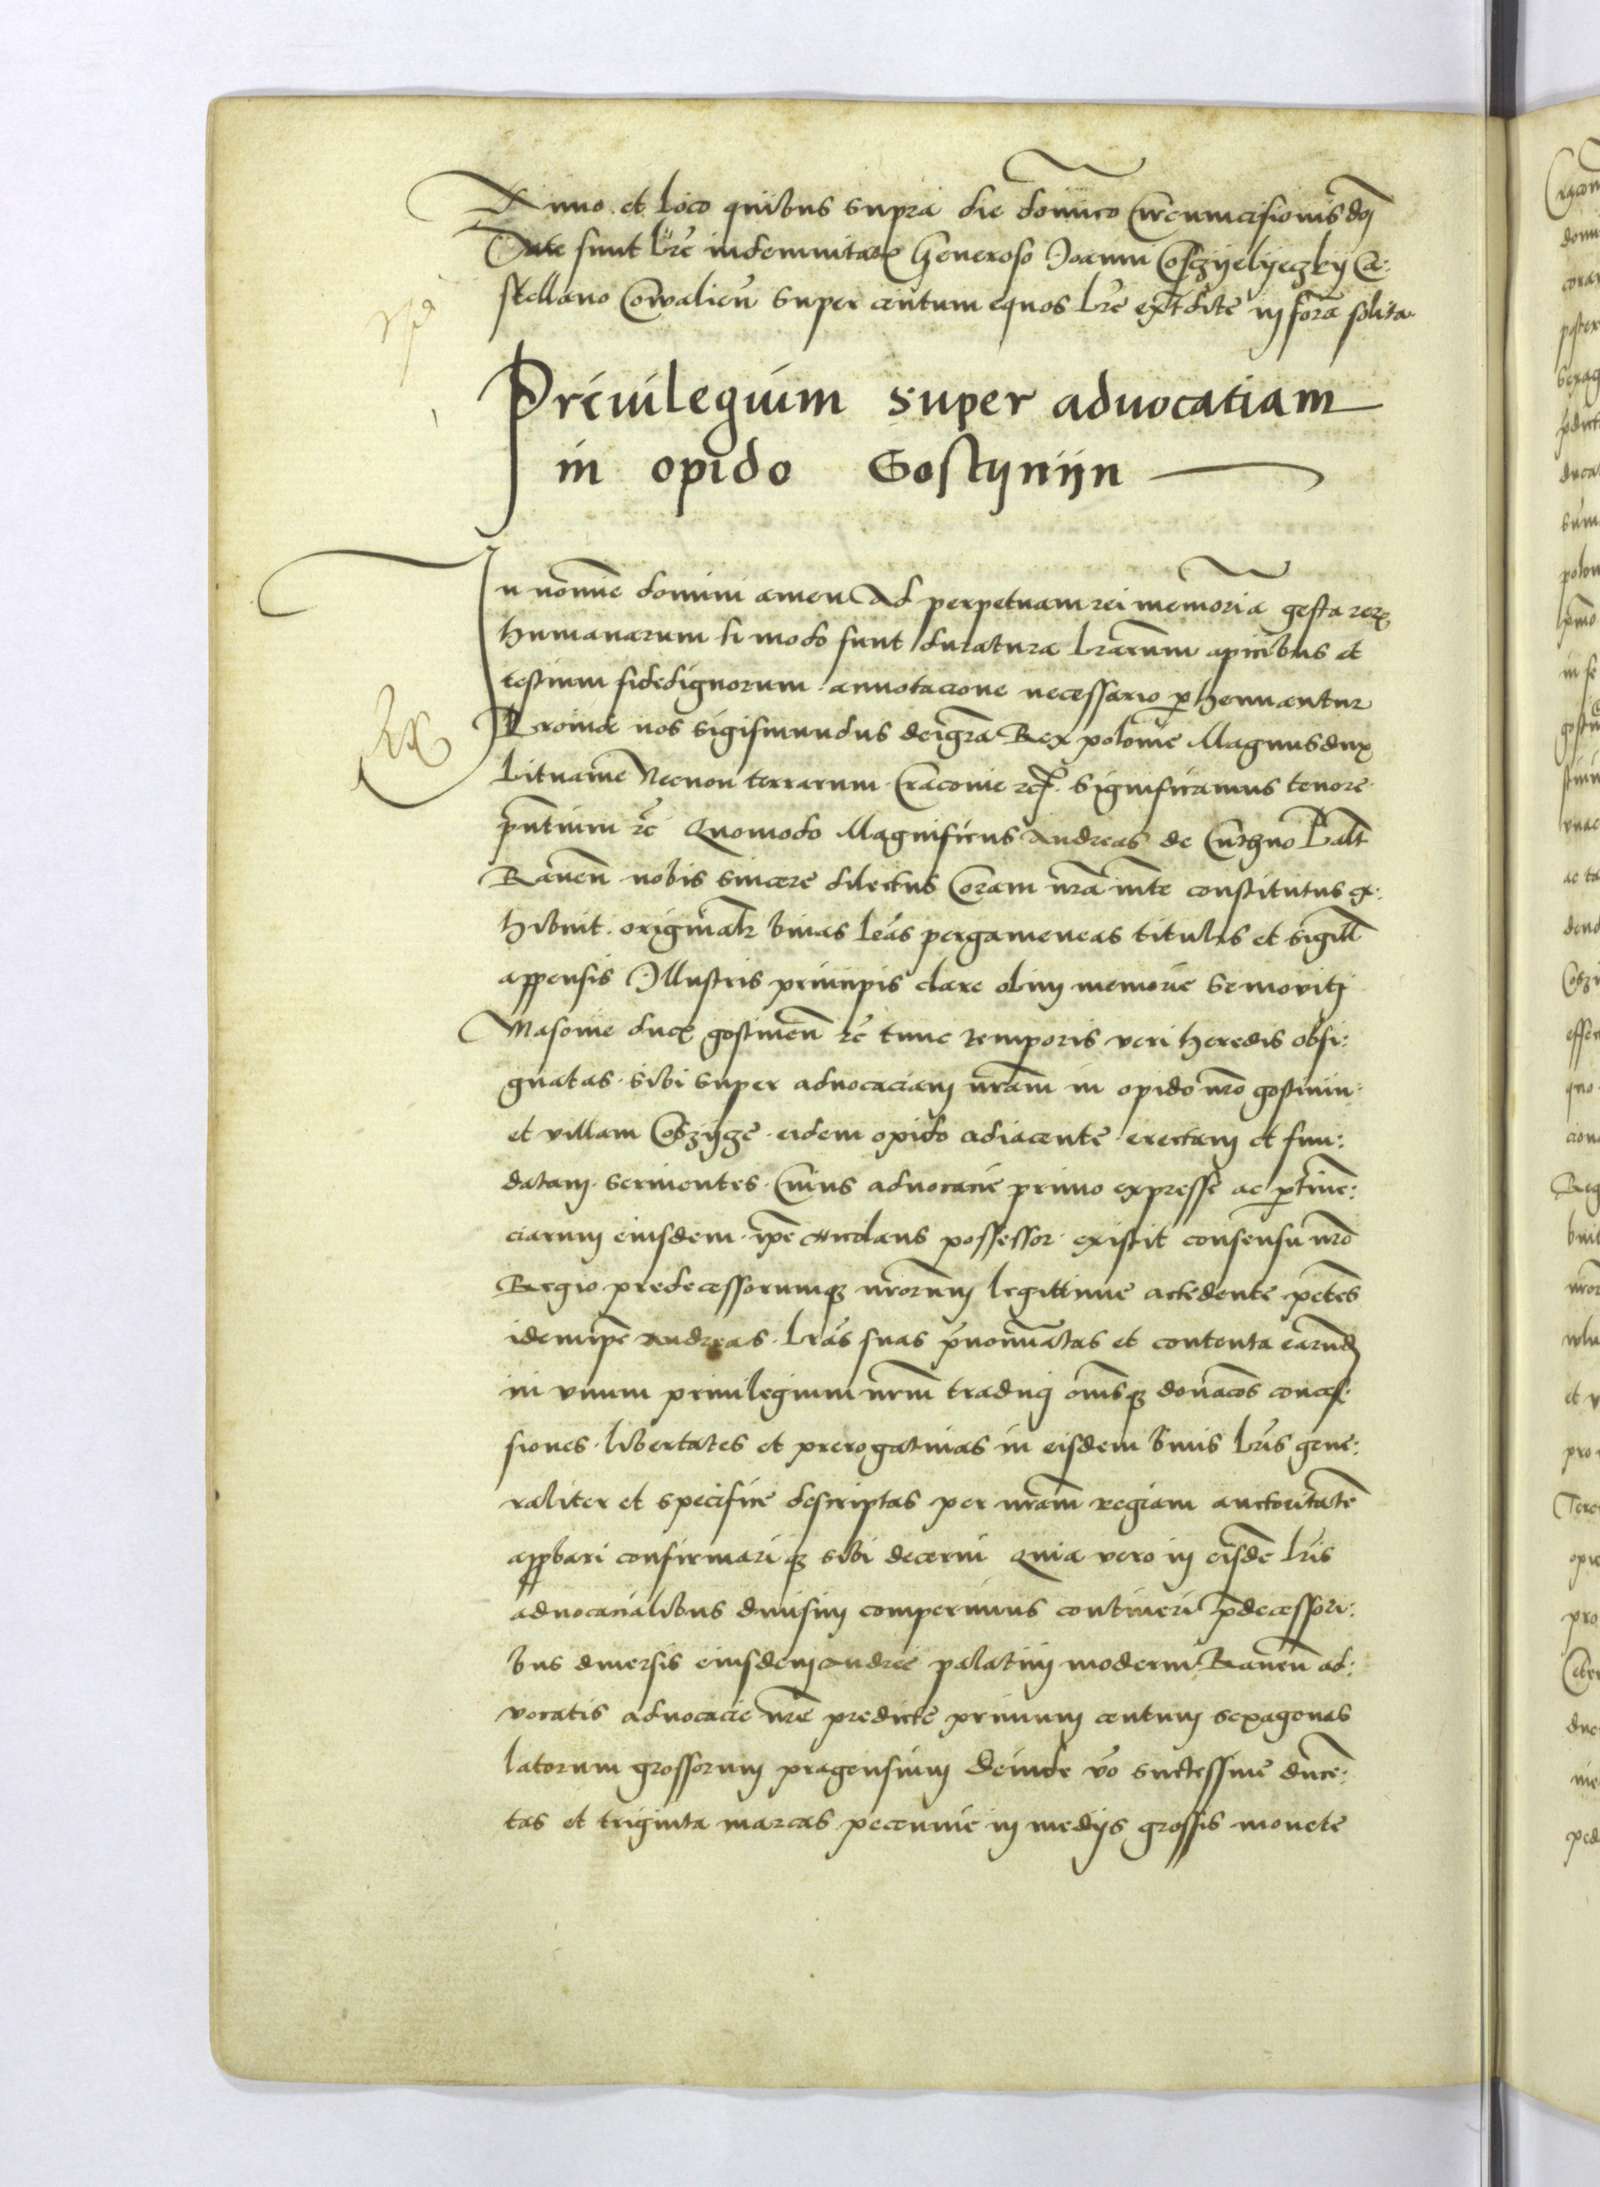 Anno et loco quibus supra die dominico Circumcisionis dnj
Date sunt lre indemnitatis Generoso Joanni Coſczyelyeczky Ca:
stellano super centum equos lre extradite in forma solita
Privilegium super advocatiam
in opido Goſtynijn
In nomine domini amen Ad perpetuam rei memoriam gesta rerum
humanarum si modo sunt duratura lrarum apicibus et
testium fidedignorum annotacione necessario perhennantur
Proinde nos Sigismundus dei gra Rex polonie Magnus dux
Lituanie Necnon terrarum Cracovie etc. significamus tenore
pntium etc Quomodo Magnificus Andreas de Palat
Raven nobis sincere dilectus Coram nra mte constitutus ex:
hibuit originalr binas lras pergameneas titulis et sigill
appensis Illustris principis clare olim memorie Semovitj
Masovie ducis gostinen etc tunc temporis veri heredis obsi:
gnatas sibi super advocaciam nram in opido nro gostinin
et villam eidem opido adiacente erectam et fun:
datam servientes Cuius advocacie primo expresse ac ptinen:
ciarum eiusdem ipe possessor existit consensu nro
Regio predecessorumque nrorum legittime accedente petens
idem ipe Andreas lras suas pnominatas et contenta earund
in unum privilegium nrm traduci omsque donacos conces:
siones libertates et prerogativas in eisdem binis lris gene:
raliter et specifice descriptas per nram regiam auctoritate
approbari confirmarique sibi decerni Quia vero in eisde lris
advocacialibus divisim comperimus contineri pdecessori:
bus diversis eiusdem Andree palatini moderni Raven ad:
vocatis advocacie nre predicte primum centum sexagenas
latorum grossorum pragensium deinde vo successive ducen:
tas et triginta marcas pecunie in medijs grossis monete